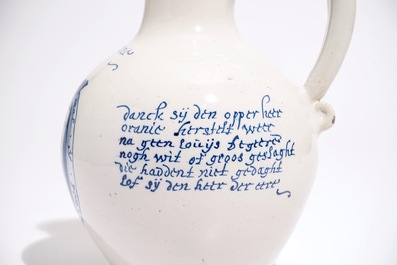 danck sij den opper heer
oranie herstelt weer
na geen louijs begeere
nogh wit of groos geslaght
die haddent niet gedaght
lof sij den heer der eere